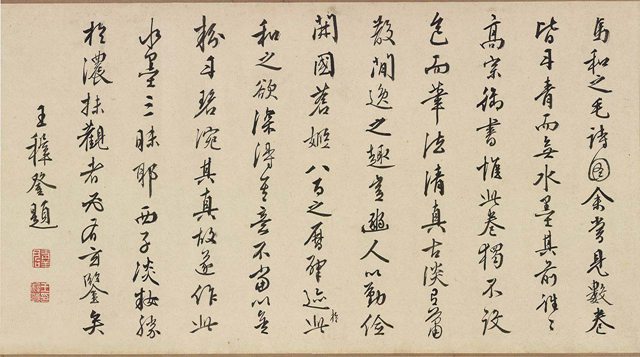 馬和之毛詩圖余嘗見數卷
皆丹青而無水墨其前往〻
高宗御書惟此卷獨不設
色而筆法清真古淡有蕭
散閒逸之趣豳人以勤儉
開國蒼姬八百之曆肇跡於此
和之欲深得其意不當以金
粉丹碧涴其真故遂作此
水墨三昧耶西子淡妝勝
於濃抹觀者有玄鑒矣
王穉登題